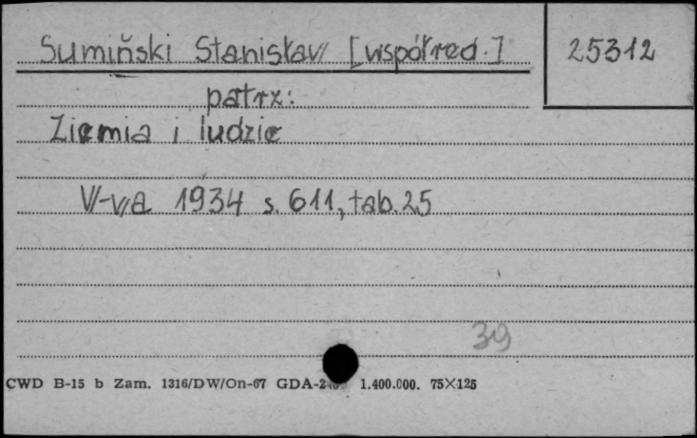 Sumiński Stanisław [współred.] 25312
patrz:
Ziemia i ludzie
W-wa 1934 s. 611, tab. 25
39
CWD B-15 b Zam. 1316/DW/On-67 1.400.000. 75×125